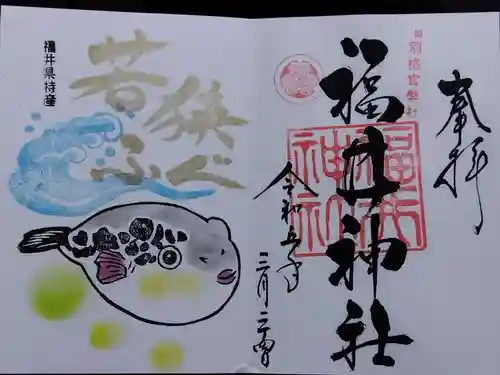 奉拝
旧別格官幣社
福井神社
令和五年
三月二十四日
福井県特産
若狭
ふぐ